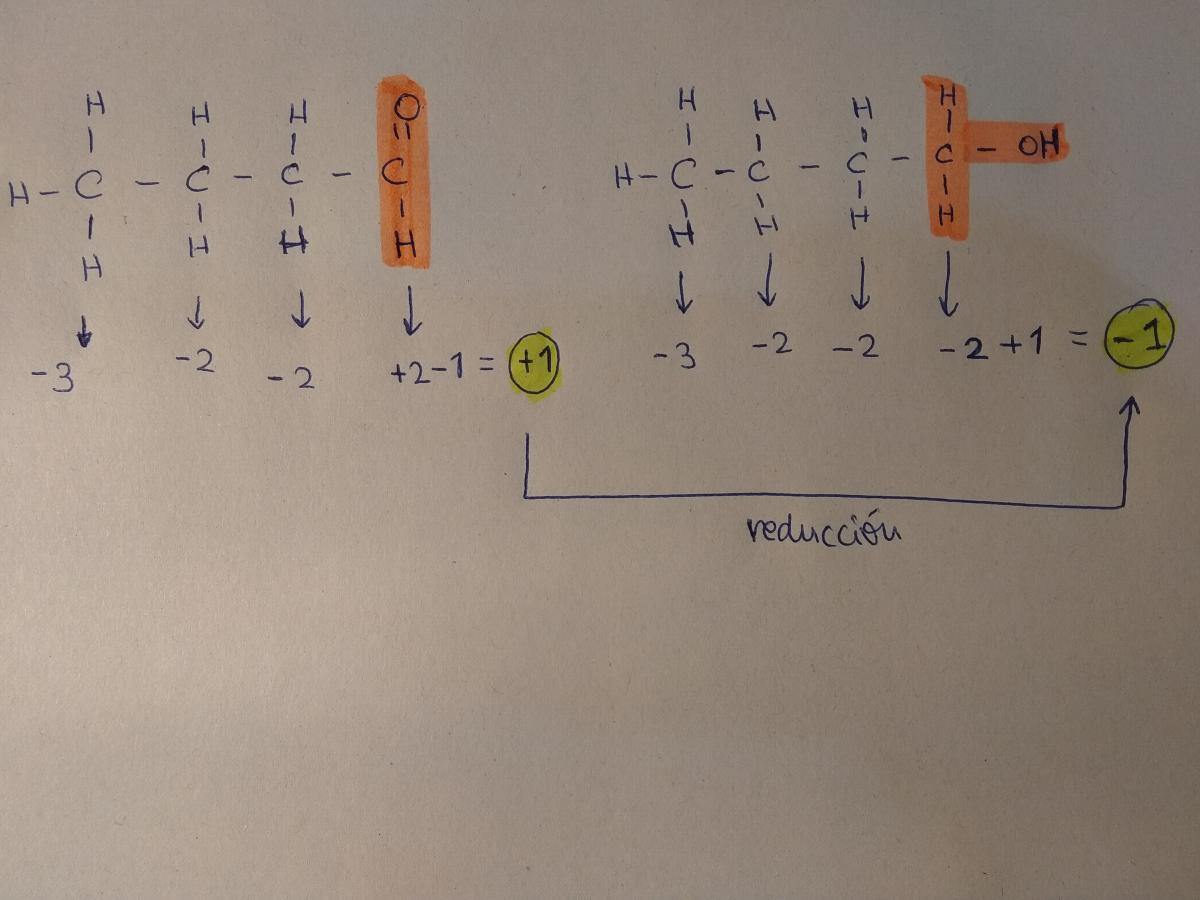 H H H O
| | | ||
H - C - C - C - C
| | | |
H H H H
-3 -2 -2 +2-1 = +1
H H H H
| | | |
H - C - C - C - C - OH
| | | |
H H H H
-3 -2 -2 -2 +1 = -1
reducción